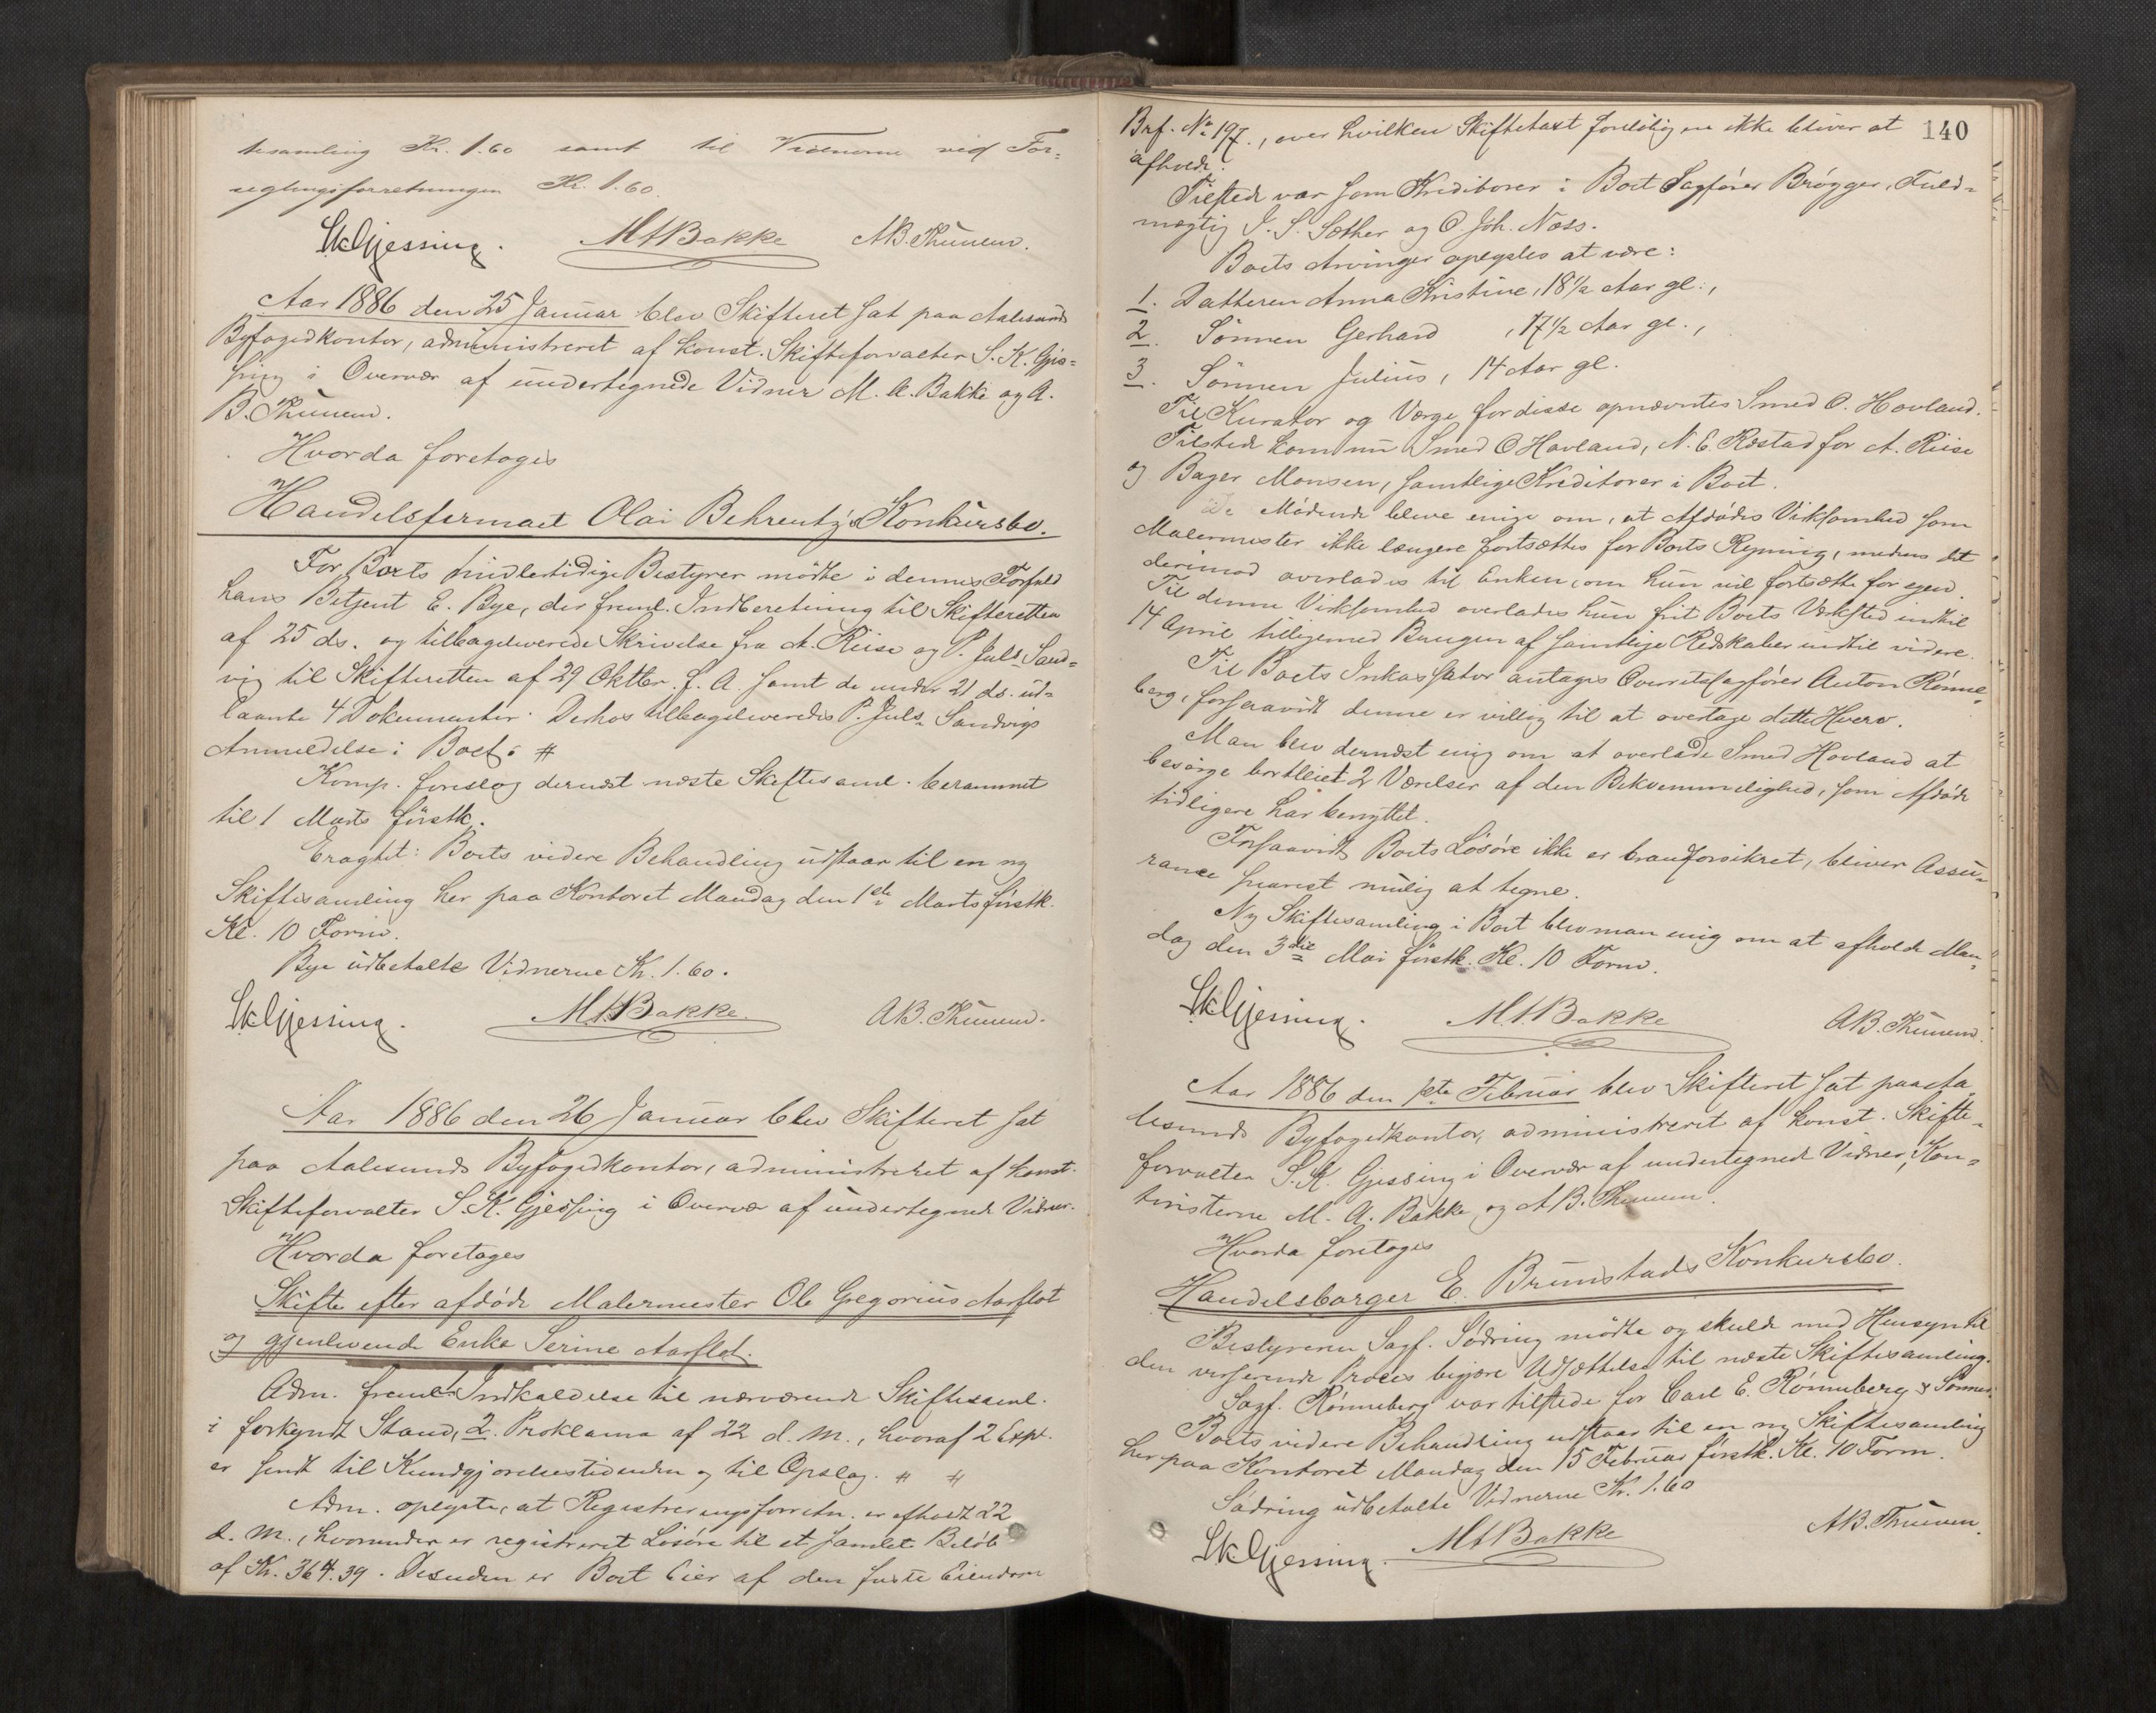 tesamling Kr. 1.60 samt til Vidnerne ved For-
seglingsforretningen Kr. 1.60.
SKGjessing. MABakke AB. Thunem.
Aar 1886 den 25 Januar blev Skifteret sat paa Aalesunds
Byfogedkontor, administreret af konst. Skifteforvalter S. K. Gjes-
sing i Overvær af undertegnede Vidner M. A. Bakke og A.
B. Thunem.
Hvorda foretoges
Handelsfirmaet Olai Behrentz's Konkursbo.
For Boets midlertidige Bestyrer mødte i dennes Forfald
hans Betjent E. Bye, der freml. Indberetning til Skifteretten
af 25 ds. og tilbageleverede Skrivelse fra A. Riise og P. Juls. Sand-
vig til Skifteretten af 29 Oktbr. f. A. samt de under 21 ds. ud-
laante 4 Dokumenter. Derhos tilbageleveredes P. Juls. Sandvigs
Anmeldelse i Boet. #
Komp. foreslog dernæst næste Skiftesaml. berammet
til 1 Marts førstk.
Eragtet: Boets videre Behandling udstaar til en ny
Skiftesamling her paa Kontoret Mandag den 1ste Marts førstk.
Kl. 10 Form.
Bye udbetalte Vidnerne Kr. 1.60.
SKGjessing. MABakke. AB. Thunem.
Aar 1886 den 26 Januar blev Skifteret sat
paa Aalesunds Byfogedkontor, administreret af konst.
Skifteforvalter S. K. Gjessing i Overvær af undertegnede Vidner.
Hvorda foretoges
Skifte efter afdøde Malermester Ole Gregorius Aarflot
og gjenlevende Enke Serine Aarflot.
Adm. freml. 1. Indkaldelse til nærværende Skiftesaml.
i forkyndt Stand, 2. Proklama af 22 d. M., hvoraf 2 Expl.
er sendt til Kundgjørelsestidenden og til Opslag. # #
Adm. oplyste, at Registreringsforretn. er afholdt 22
d. M., hvorunder er registreret Løsøre til et samlet Beløb
af Kr. 364.39. Desuden er Boet Eier af den faste Eiendom
140
Brf. No 197., over hvilken Skiftetaxt foreløbig ikke bliver at
afholde.
Tilstede var som Kreditorer i Boet Sagfører Brøgger, Fuld-
mægtig J. S. Sæther og O. Joh. Næss.
Boets Arvinger oplystes at være:
1. Datteren Anna Kristine, 18½ Aar gl.,
2. Sønnen Gerhard, 17½ Aar gl.,
3. Sønnen Julius, 14 Aar gl.
Til Kurator og Værge for disse opnævntes Smed O. Hovland.
Tilstede kom nu Smed O Hovland, N. E. Røstad for A. Riise
og Bager Monsen, samtlige Kreditorer i Boet.
De Mødende bleve enige om, at Afdødes Virksomhed som
Malermester ikke længere fortsættes for Boets Regning, medens det
derimod overlades til Enken, om hun vil fortsætte for egen.
Til denne Virksomhed overlades hun frit Boets Værksted indtil
14 April tilligemed Brugen af samtlige Redskaber indtil videre.
Til Boets Inkassator antages Overretssagfører Anton Rønne-
berg, forsaavidt denne er villig til at overtage dette Hverv.
Man blev dernæst enig om at overlade Smed Hovland at
besørge bortleiet 2 Værelser af den Bekvemmelighed, som Afdøde
tidligere har benyttet.
Forsaavidt Boets Løsøre ikke er brandforsikret, bliver Assu-
rance snarest mulig at tegne.
Ny Skiftesamling i Boet blev man enig om at afholde Man-
dag den 3die Mai førstk. Kl. 10 Form.
SKGjessing. M.A.Bakke AB. Thunem.
Aar 1886 den 1ste Februar blev Skifteret sat paa Aa-
lesunds Byfogedkontor, administreret af konst. Skifte-
forvalter S. K. Gjessing i Overvær af undertegnede Vidner, Kon-
toristerne M. A. Bakke og A B. Thunem.
Hvorda foretoges
Handelsborger E. Brunstads Konkursbo.
Bestyreren Sagf. Sødring mødte og skulde med Hensyn til
den verserende Proces begjære Udsættelse til næste Skiftesamling.
Sagf. Rønneberg var tilstede for Carl E. Rønneberg & Sønner.
Boets videre Behandling udstaar til en ny Skiftesamling
her paa Kontoret Mandag den 15 Februar førstk. Kl. 10 Form.
Sødring udbetalte Vidnerne Kr. 1.60
SKGjessing. MABakke AB. Thunem.